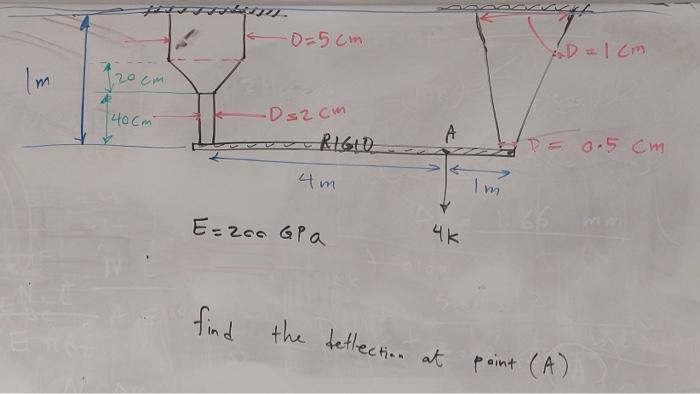 D=5 cm
D=1 cm
1m
20 cm
40cm
D=2 cm
RIGID
A
D= 0.5 cm
4m
1m
E=200 GPa
4k
find the deflection at point (A)